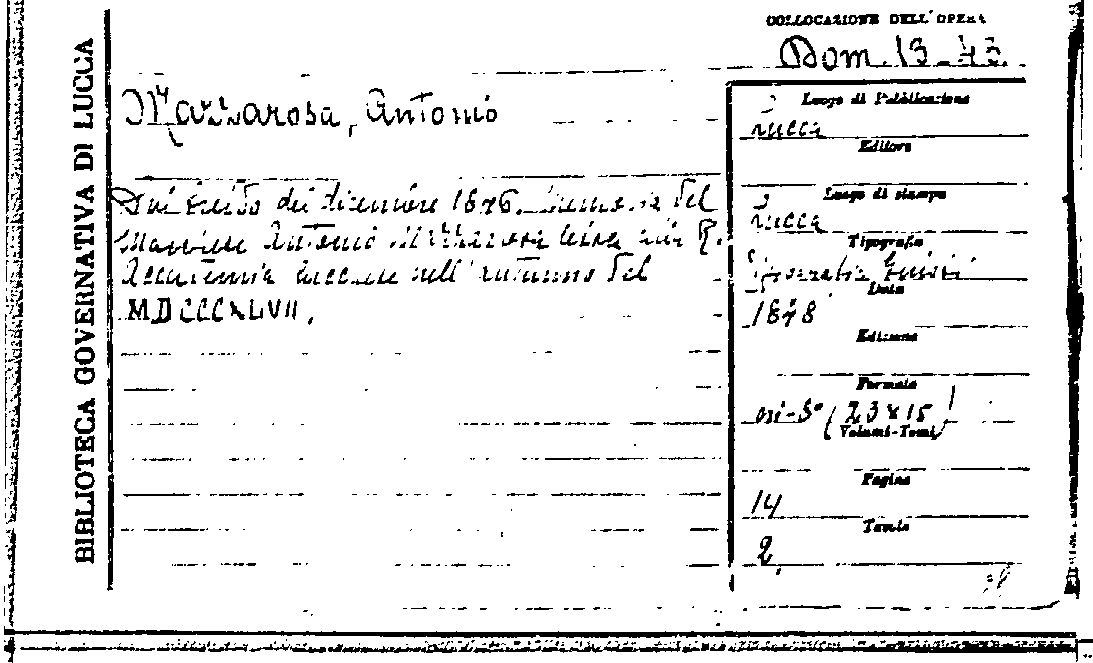 COLLOCAZIONE DELL'OPERA
Dom. 13. 43.
BIBLIOTECA GOVERNATIVA DI LUCCA
Mazzarosa, Antonio
del dicembre 1846. Memoria del
Marchese Antonio Mazzarosa letta alla R.
Accademia lucchese nell'autunno del
MDCCCXLVII.
Luogo di Pubblicazione
Lucca
Editore
Luogo di stampa
Lucca
Tipografia
Tipografia Giusti
Data
1848
Edizione
Formato
in-8° (23x15)
Volumi-Tomi
Pagine
14
Tavole
2.